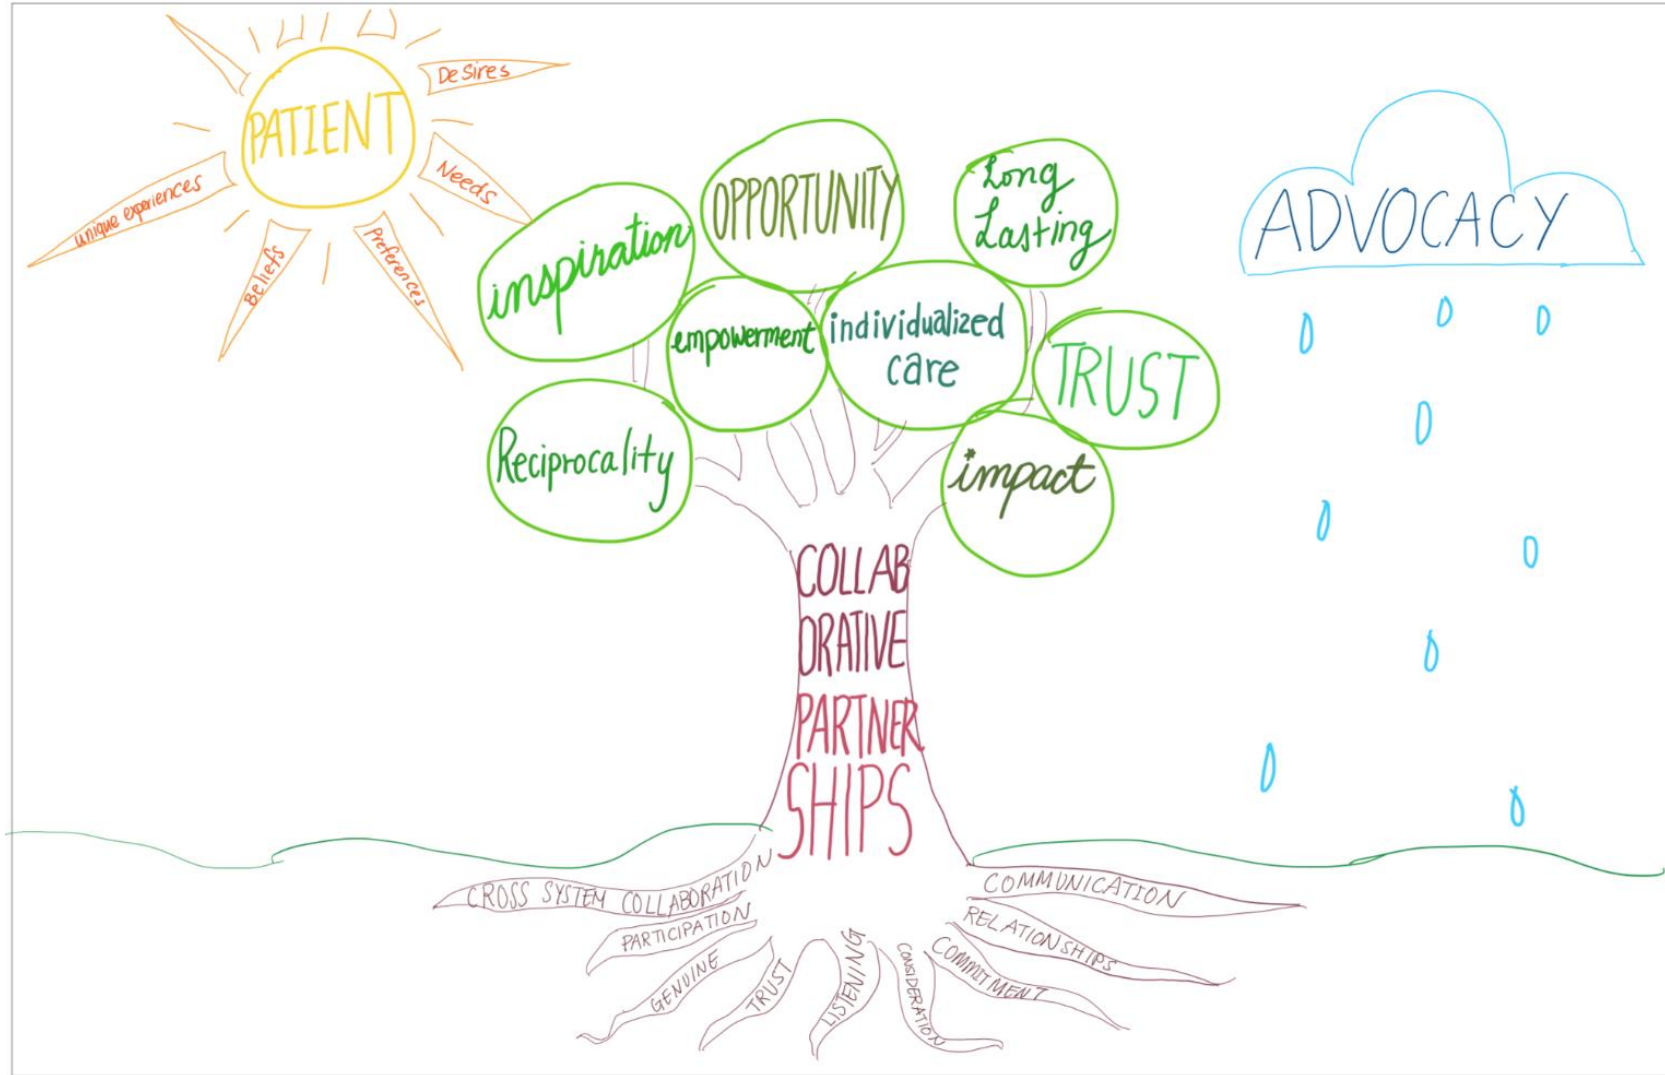 PATIENT
Desires
Needs
Preferences
Beliefs
Unique experiences
inspiration
OPPORTUNITY
Long
Lasting
empowerment
individualized
care
TRUST
Reciprocality
impact
ADVOCACY
COLLAB
ORATIVE
PARTNER
SHIPS
CROSS SYSTEM COLLABORATION
PARTICIPATION
GENUINE
TRUST
LISTENING
CONSIDERATION
COMMITMENT
RELATIONSHIPS
COMMUNICATION